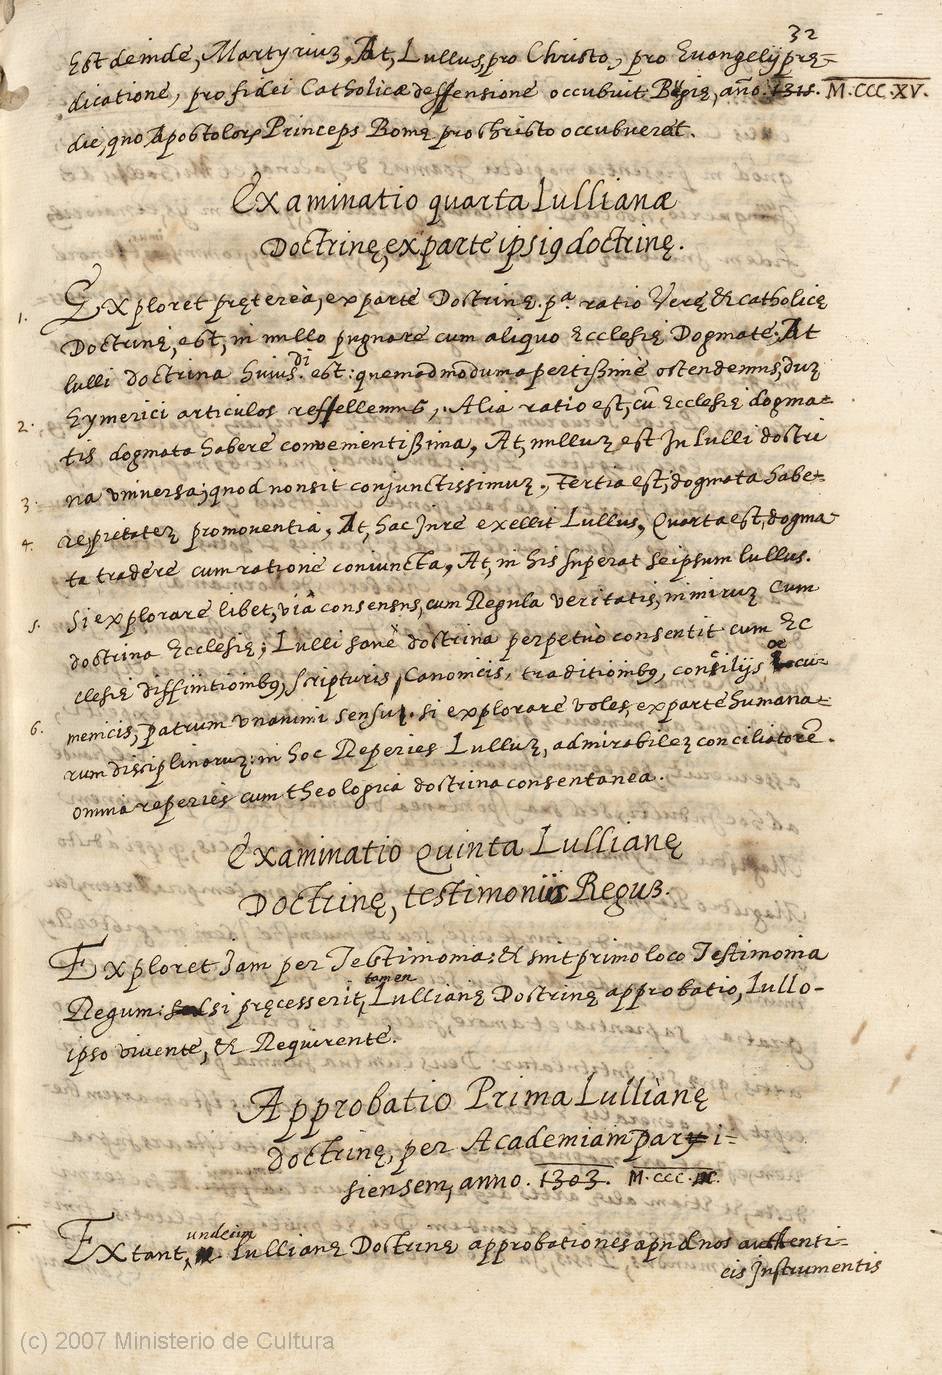 32
Est deinde, Martyriuz, At, Lullus, pro Christo, pro Euangelij prę=
dicatione, pro fidei Catholicæ deffensione occubuit Bugię, año. 1315. M.CCC.XV.
die, quo Apostolorz Princeps Romę pro Christo occubuerat.
Examinatio quarta Lullianæ
Doctrinę, ex parte ipsiq doctrinę.
1. Exploret pręterèa, ex parte Doctrinę. pª. ratio Verę & catholicę
Doctrinę, est, in nullo pugnare cum aliquo Ecclesię Dogmate. At
lulli doctrina huius.di est: quemadmodum apertißimè ostendemus, duz
2. Eymerici articulos reffellemus, Alia ratio est, cũ Ecclesię dogma=
tis dogmata habere convenientißima, At, nulluz est In lulli doctri
3. na vniversa; quod non sit conjunctissimuz., Tertia est, dogmata habe=
4. re, pietatez promoventia, At, hac In re exellit Lullus, Quarta est, dogma=
ta tradere cum ratione coniuncta, At, in his superat seipsum lullus.
5. Si explorare libet, viâ consensus, cum Regula veritatis, nimiruz Cum
doctrina Ecclesię; Lulli sanè doctrina perpetuò consentit cum Ec
clesię diffinitionibq, scripturis, Canonicis, traditionibq, consilijs, œcu=
6. menicis, patrum vnanimi sensu. si explorare voles, ex parte humana=
rum disciplinaruz: in hoc Reperies Lulluz, admirabilez conciliatorẽ.
omnia reperies cum theologica doctrina consentanea.
Examinatio Quinta Lullianę
Doctrinę, testimoniis Reguz.
Exploret Iam per Testimonia: & sint primo loco Testimonia
tamen
Regum: si pręcesserit, Lullianę Doctrinę approbatio, Lullo-
ipso vivente, & Requirente.
Approbatio Prima Lullianę
doctrinę, per Academiam pary i=
siensem, anno. 1303. M.CCC.
undecim
Extant, Lullianę Doctrinę approbationes apud nos authenti=
cis Instrumentis
(c) 2007 Ministerio de Cultura